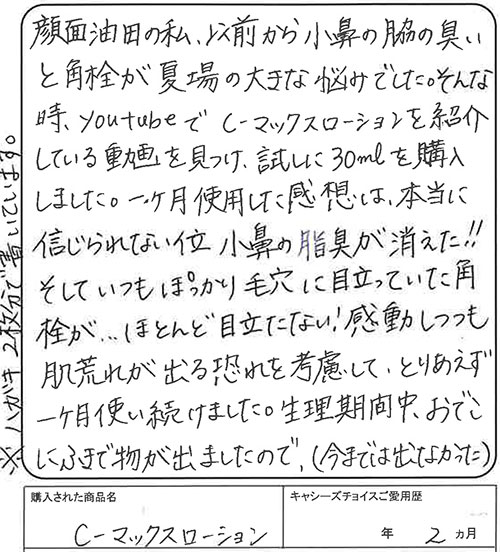 顔面油田の私、以前から小鼻の脇の臭い
と角栓が夏場の大きな悩みでした。そんな
時、youtubeでC-マックスローションを紹介
している動画を見つけ、試しに30mlを購入
しました。一ヶ月使用した感想は、本当に
信じられない位 小鼻の脂臭が消えた!!
そしていつもぽっかり毛穴に目立っていた角
栓が…ほとんど目立たない!感動しつつも
肌荒れが出る恐れを考慮して、とりあえず
一ケ月使い続けました。生理期間中、おでこ
にふきで物が出ましたので、(今までは出なかった)
※ハガキ2枚分で書いています。
購入された商品名
C-マックスローション
キャシーズチョイスご愛用歴
年 2 カ月